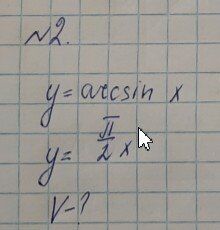 №2.
y = arcsin x
y = π/2 x
V-?